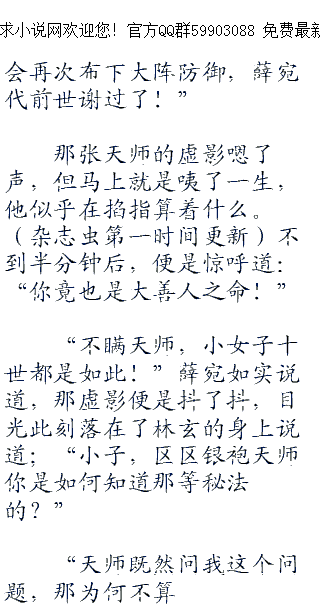 求小说网欢迎您！官方QQ群59903088 免费最新
会再次布下大阵防御，薛宛
代前世谢过了！”
那张天师的虚影嗯了
声，但马上就是咦了一生，
他似乎在掐指算着什么。
（杂志虫第一时间更新）不
到半分钟后，便是惊呼道：
“你竟也是大善人之命！”
“不瞒天师，小女子十
世都是如此！”薛宛如实说
道，那虚影便是抖了抖，目
光此刻落在了林玄的身上说
道；“小子，区区银袍天师
你是如何知道那等秘法
的？”
“天师既然问我这个问
题，那为何不算